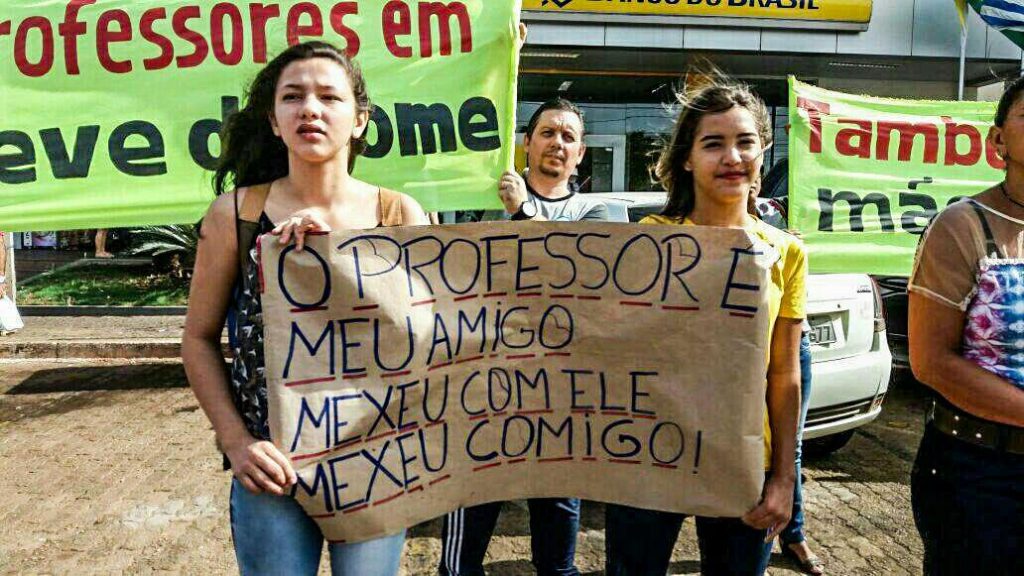 BANCO DO BRASIL
rofessores em
eve de ome
També
más
O PROFESSOR E
MEU AMIGO
MEXEU COM ELE
MEXEU COMIGO!